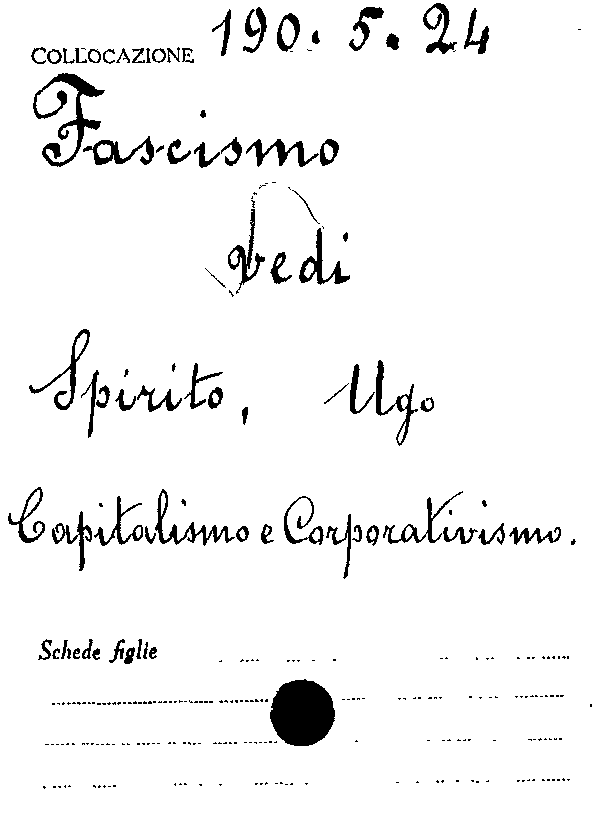 COLLOCAZIONE 190. 5. 24
Fascismo
vedi
Spirito, Ugo
Capitalismo e Corporativismo.
Schede figlie